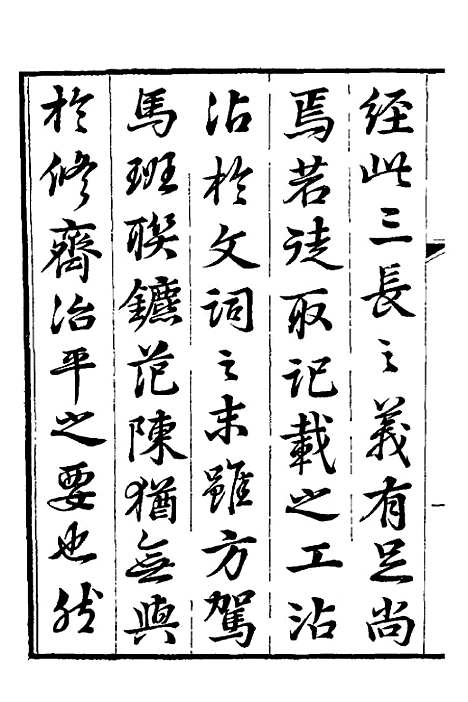 經此三長之義有足尚
焉若徒取記載之工沾
沾於文詞之末雖方駕
馬班聯鑣范陳猶無與
於修齊治平之要也然
一